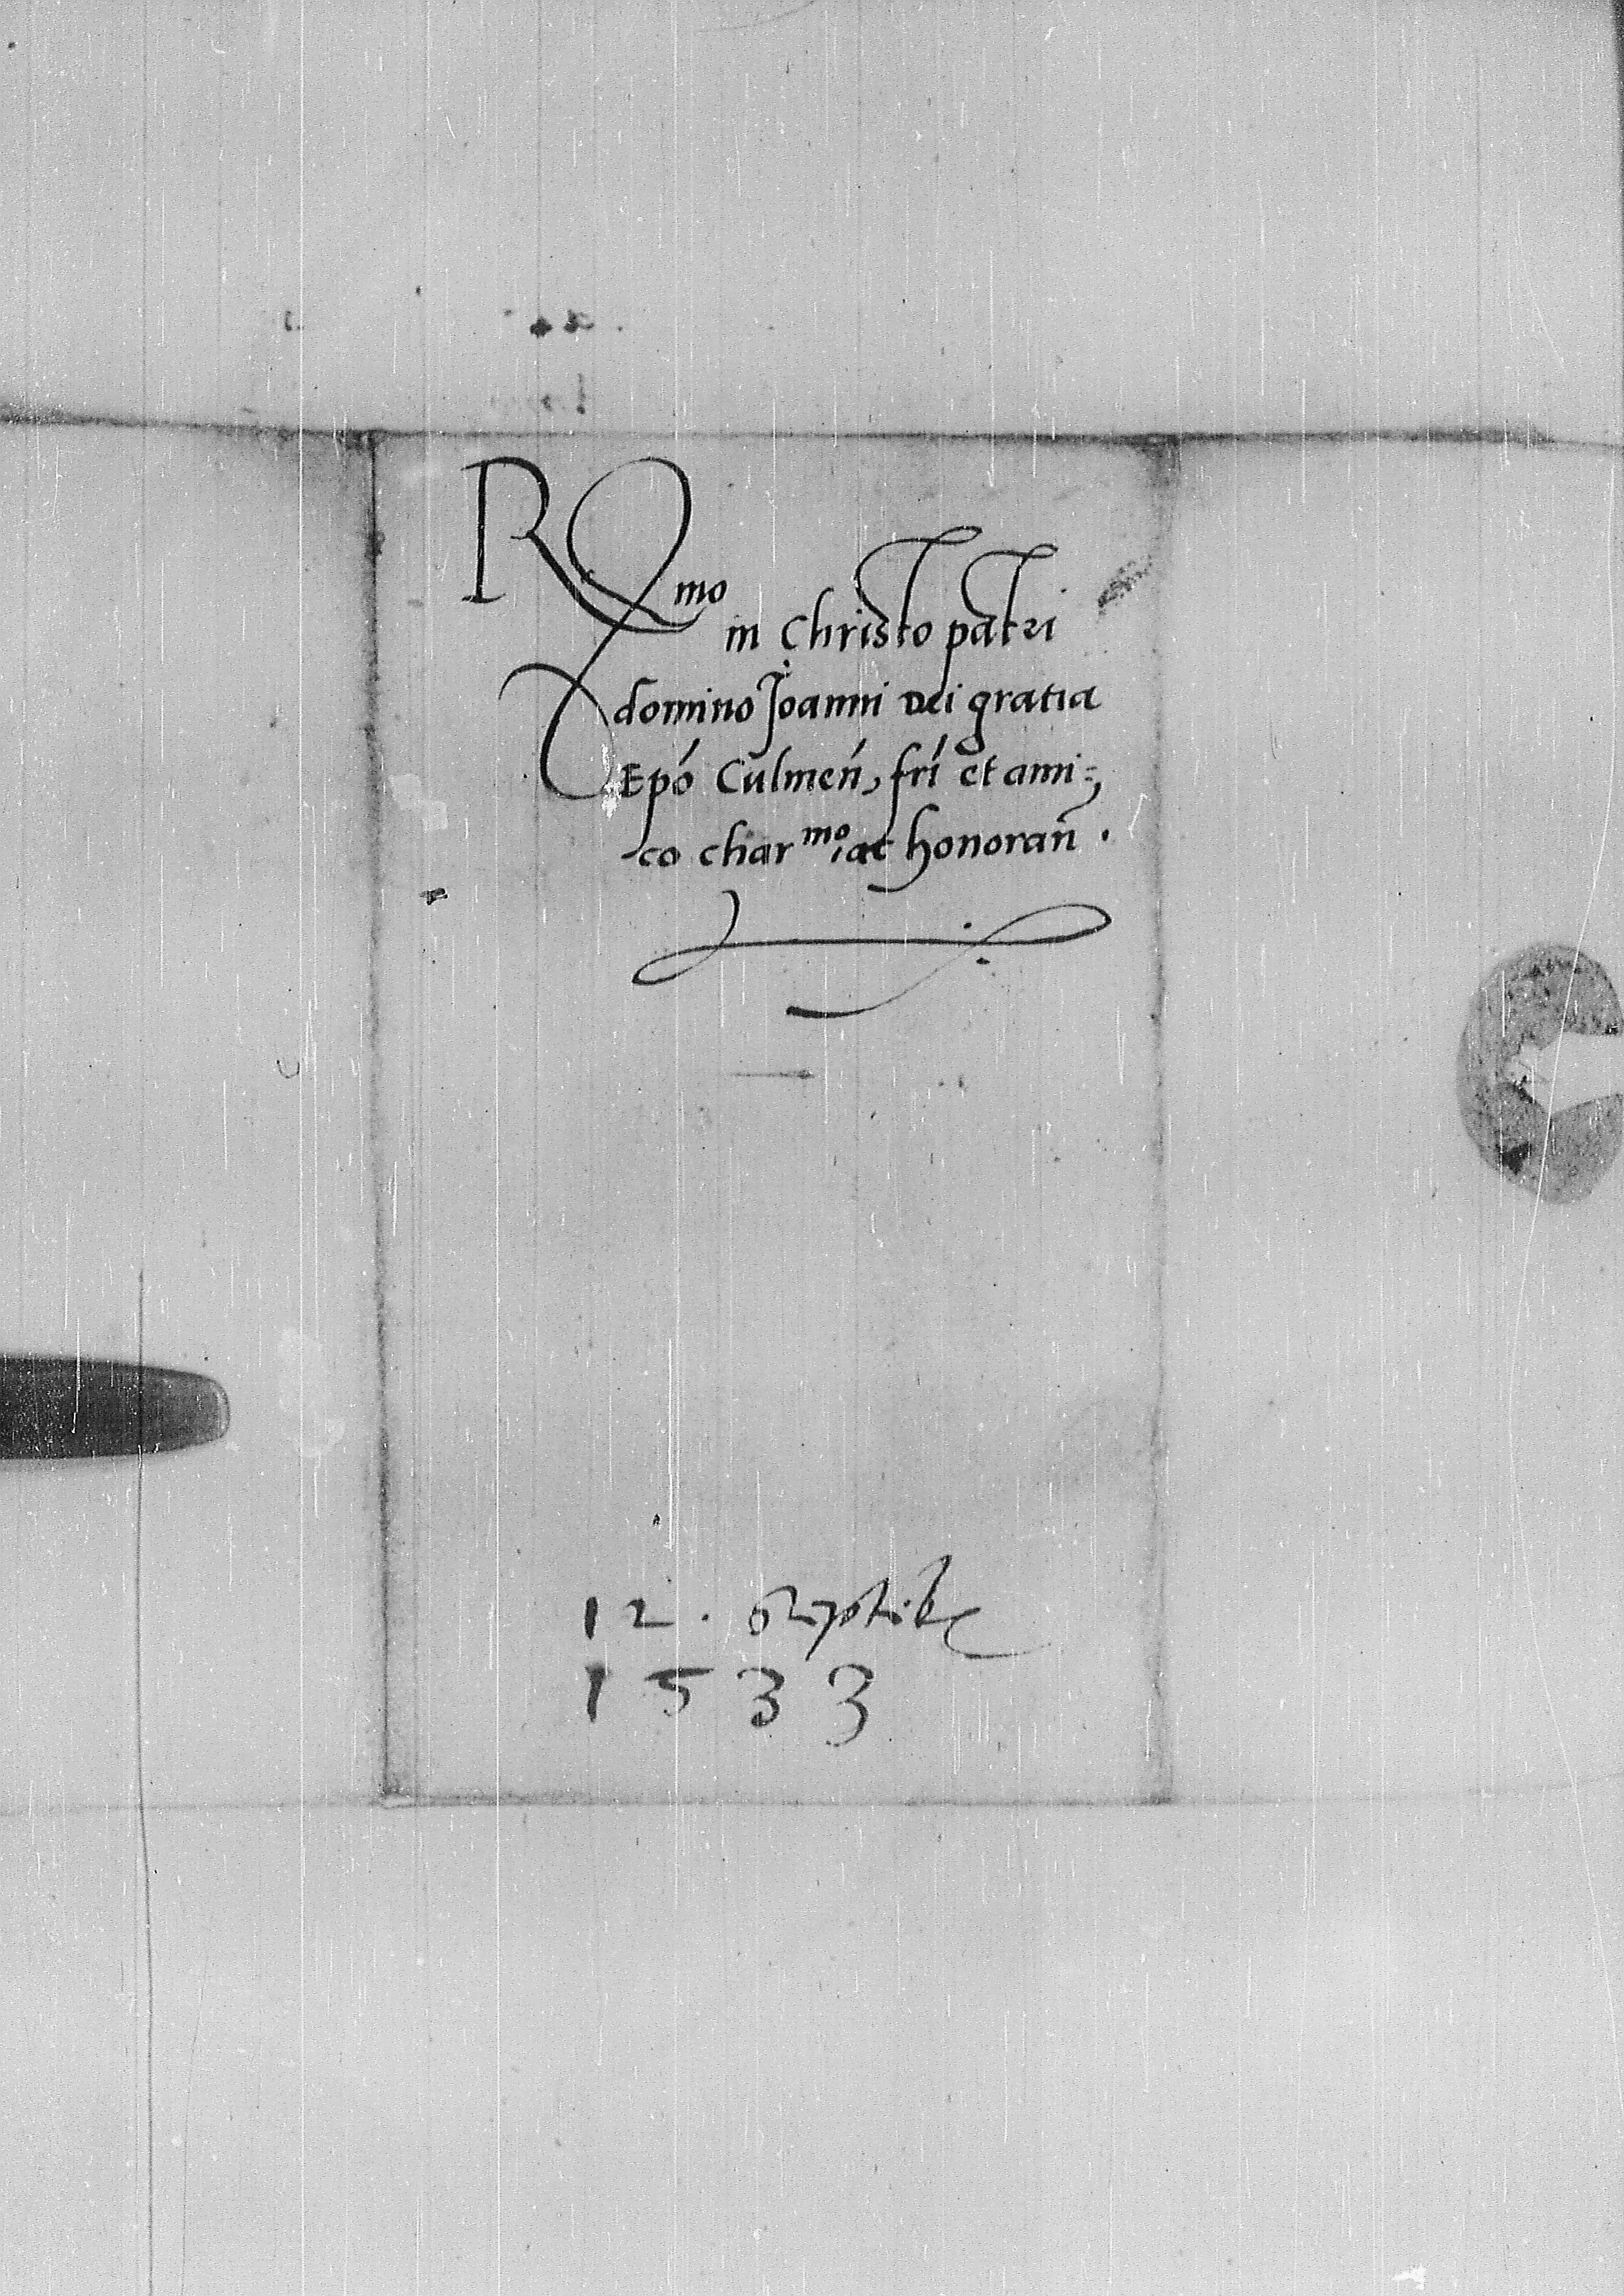 Rmo
in Christo patri
domino Joanni Dei gratia
Epó Culmeń, frí et ami=
co charmo, ac honorań.
12.
1533